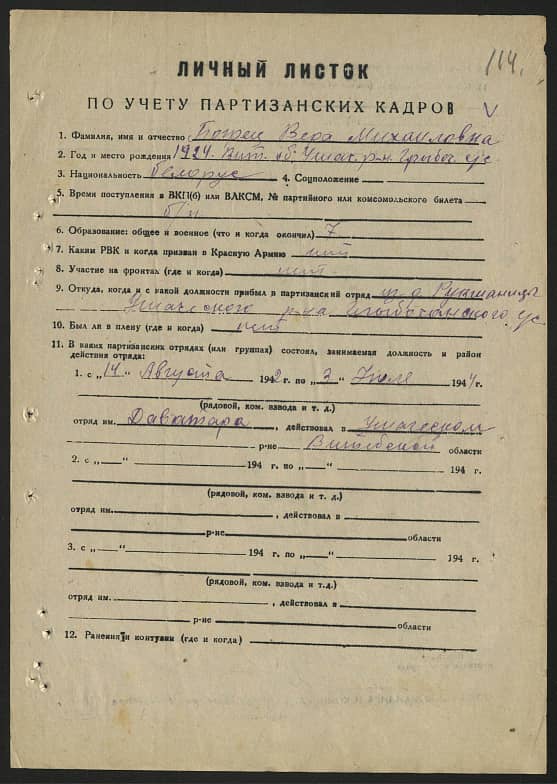 114.
ЛИЧНЫЙ ЛИСТОК
ПО УЧЕТУ ПАРТИЗАНСКИХ КАДРОВ V
1. Фамилия, имя и отчество Вера Михаиловна
2. Год и место рождения 1924. Вит. об. Ушач. р-н. с/с
3. Национальность белорус 4. Соцположение
5. Время поступления в ВКП(б) или ВЛКСМ, № партийного или комсомольского билета
б/п
6. Образование: общее и военное (что и когда окончил) 7
7. Каким РВК и когда призван в Красную Армию нит
8. Участие на фронтах (где и когда) нит
9. Откуда, когда и с какой должности прибыл в партизанский отряд из д Рукшаницы
Ушаческого р-на с/с
10. Был ли в плену (где и когда) нит
11. В каких партизанских отрядах (или группах) состоял, занимаемая должность и район
действия отряда:
1. с „14“ Августа 1942 г. по „3“ Июле 1944 г.
(рядовой, ком. взвода и т. д.)
отряд им. Даватара, действовал в Ушаческом
р-не Витебской области
2. с „ “ 194 г. по „ “ 194 г.
(рядовой, ком. взвода и т. д.)
отряд им. , действовал в
р-не области
3. с „ “ 194 г. по „ “ 194 г.
(рядовой, ком. взвода и т.д.)
отряд им. , действовал в
р-не области
12. Ранения и контузии (где и когда)